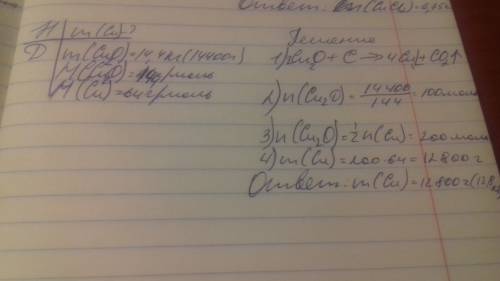 Ответ. m(CuCl₂)=0,
Н | m(Cu)?
Д | m(Cu₂O)=14,4кг(14400г)
M(Cu₂O)=144г/моль
M(Cu)=64г/моль
Решение
1) 2Cu₂O + C → 4Cu + CO₂↑
2) n(Cu₂O) = 14400/144 = 100моль
3) n(Cu₂O) = ½ n(Cu) = 200моль
4) m(Cu) = 200·64 = 12800г
Ответ. m(Cu) = 12800г (12,8кг)